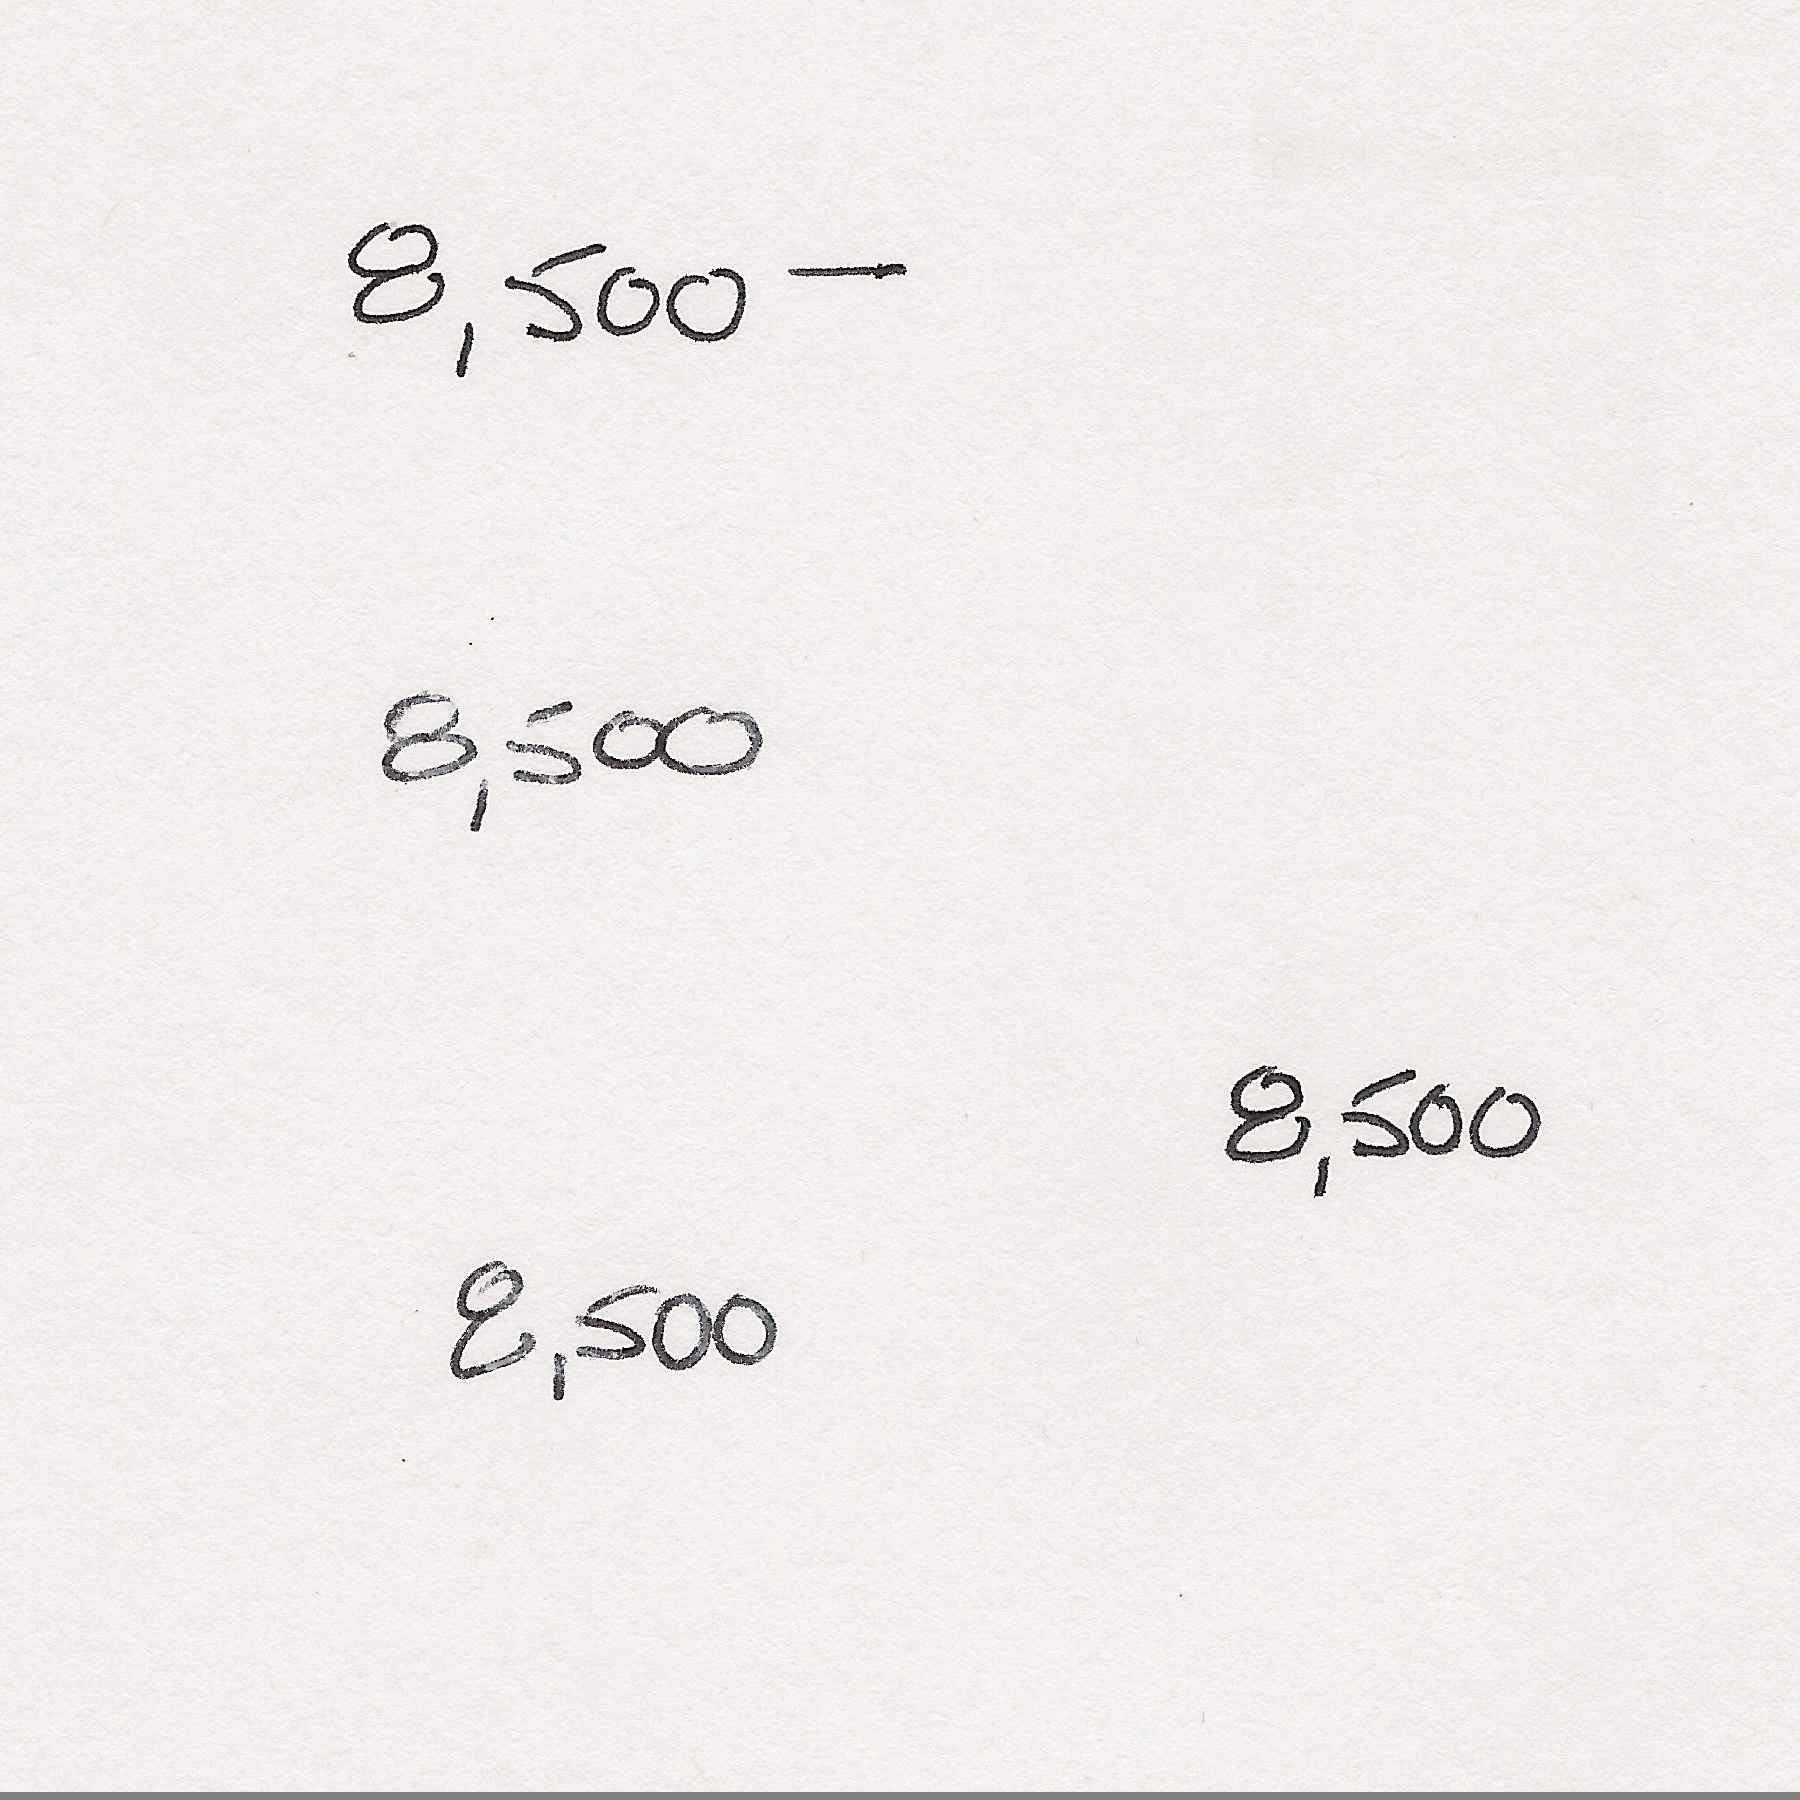 8,500 —
8,500
8,500
8,500